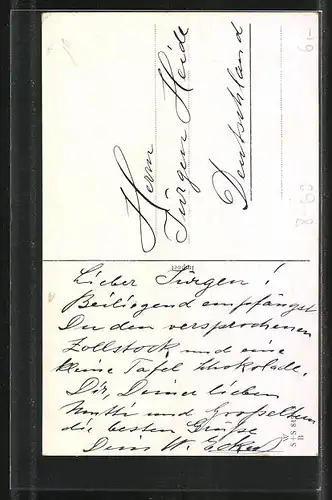 Herrn
Jürgen Heide
Deutschland
Import
Lieber Jürgen!
Beiliegend empfängst
Du den versprochenen
Zollstock und eine
kleine Tafel Schokolade.
Dir, Deiner lieben
Mutti und Großeltern
die besten Grüße
Dein W. Eckert